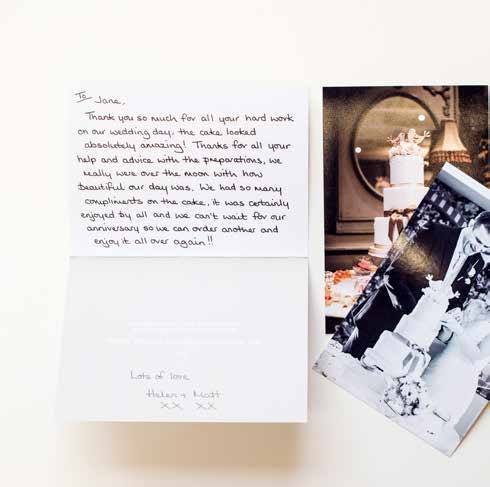 To Jane,
Thank you so much for all your hard work
on our wedding day. the cake looked
absolutely amazing! Thanks for all your
help and advice with the preparations, we
really were over the moon with how
beautiful our day was. We had so many
compliments on the cake, it was certainly
enjoyed by all and we can't wait for our
anniversary so we can order another and
enjoy it all over again!!
Lots of love
Helen & Matt
xx xx